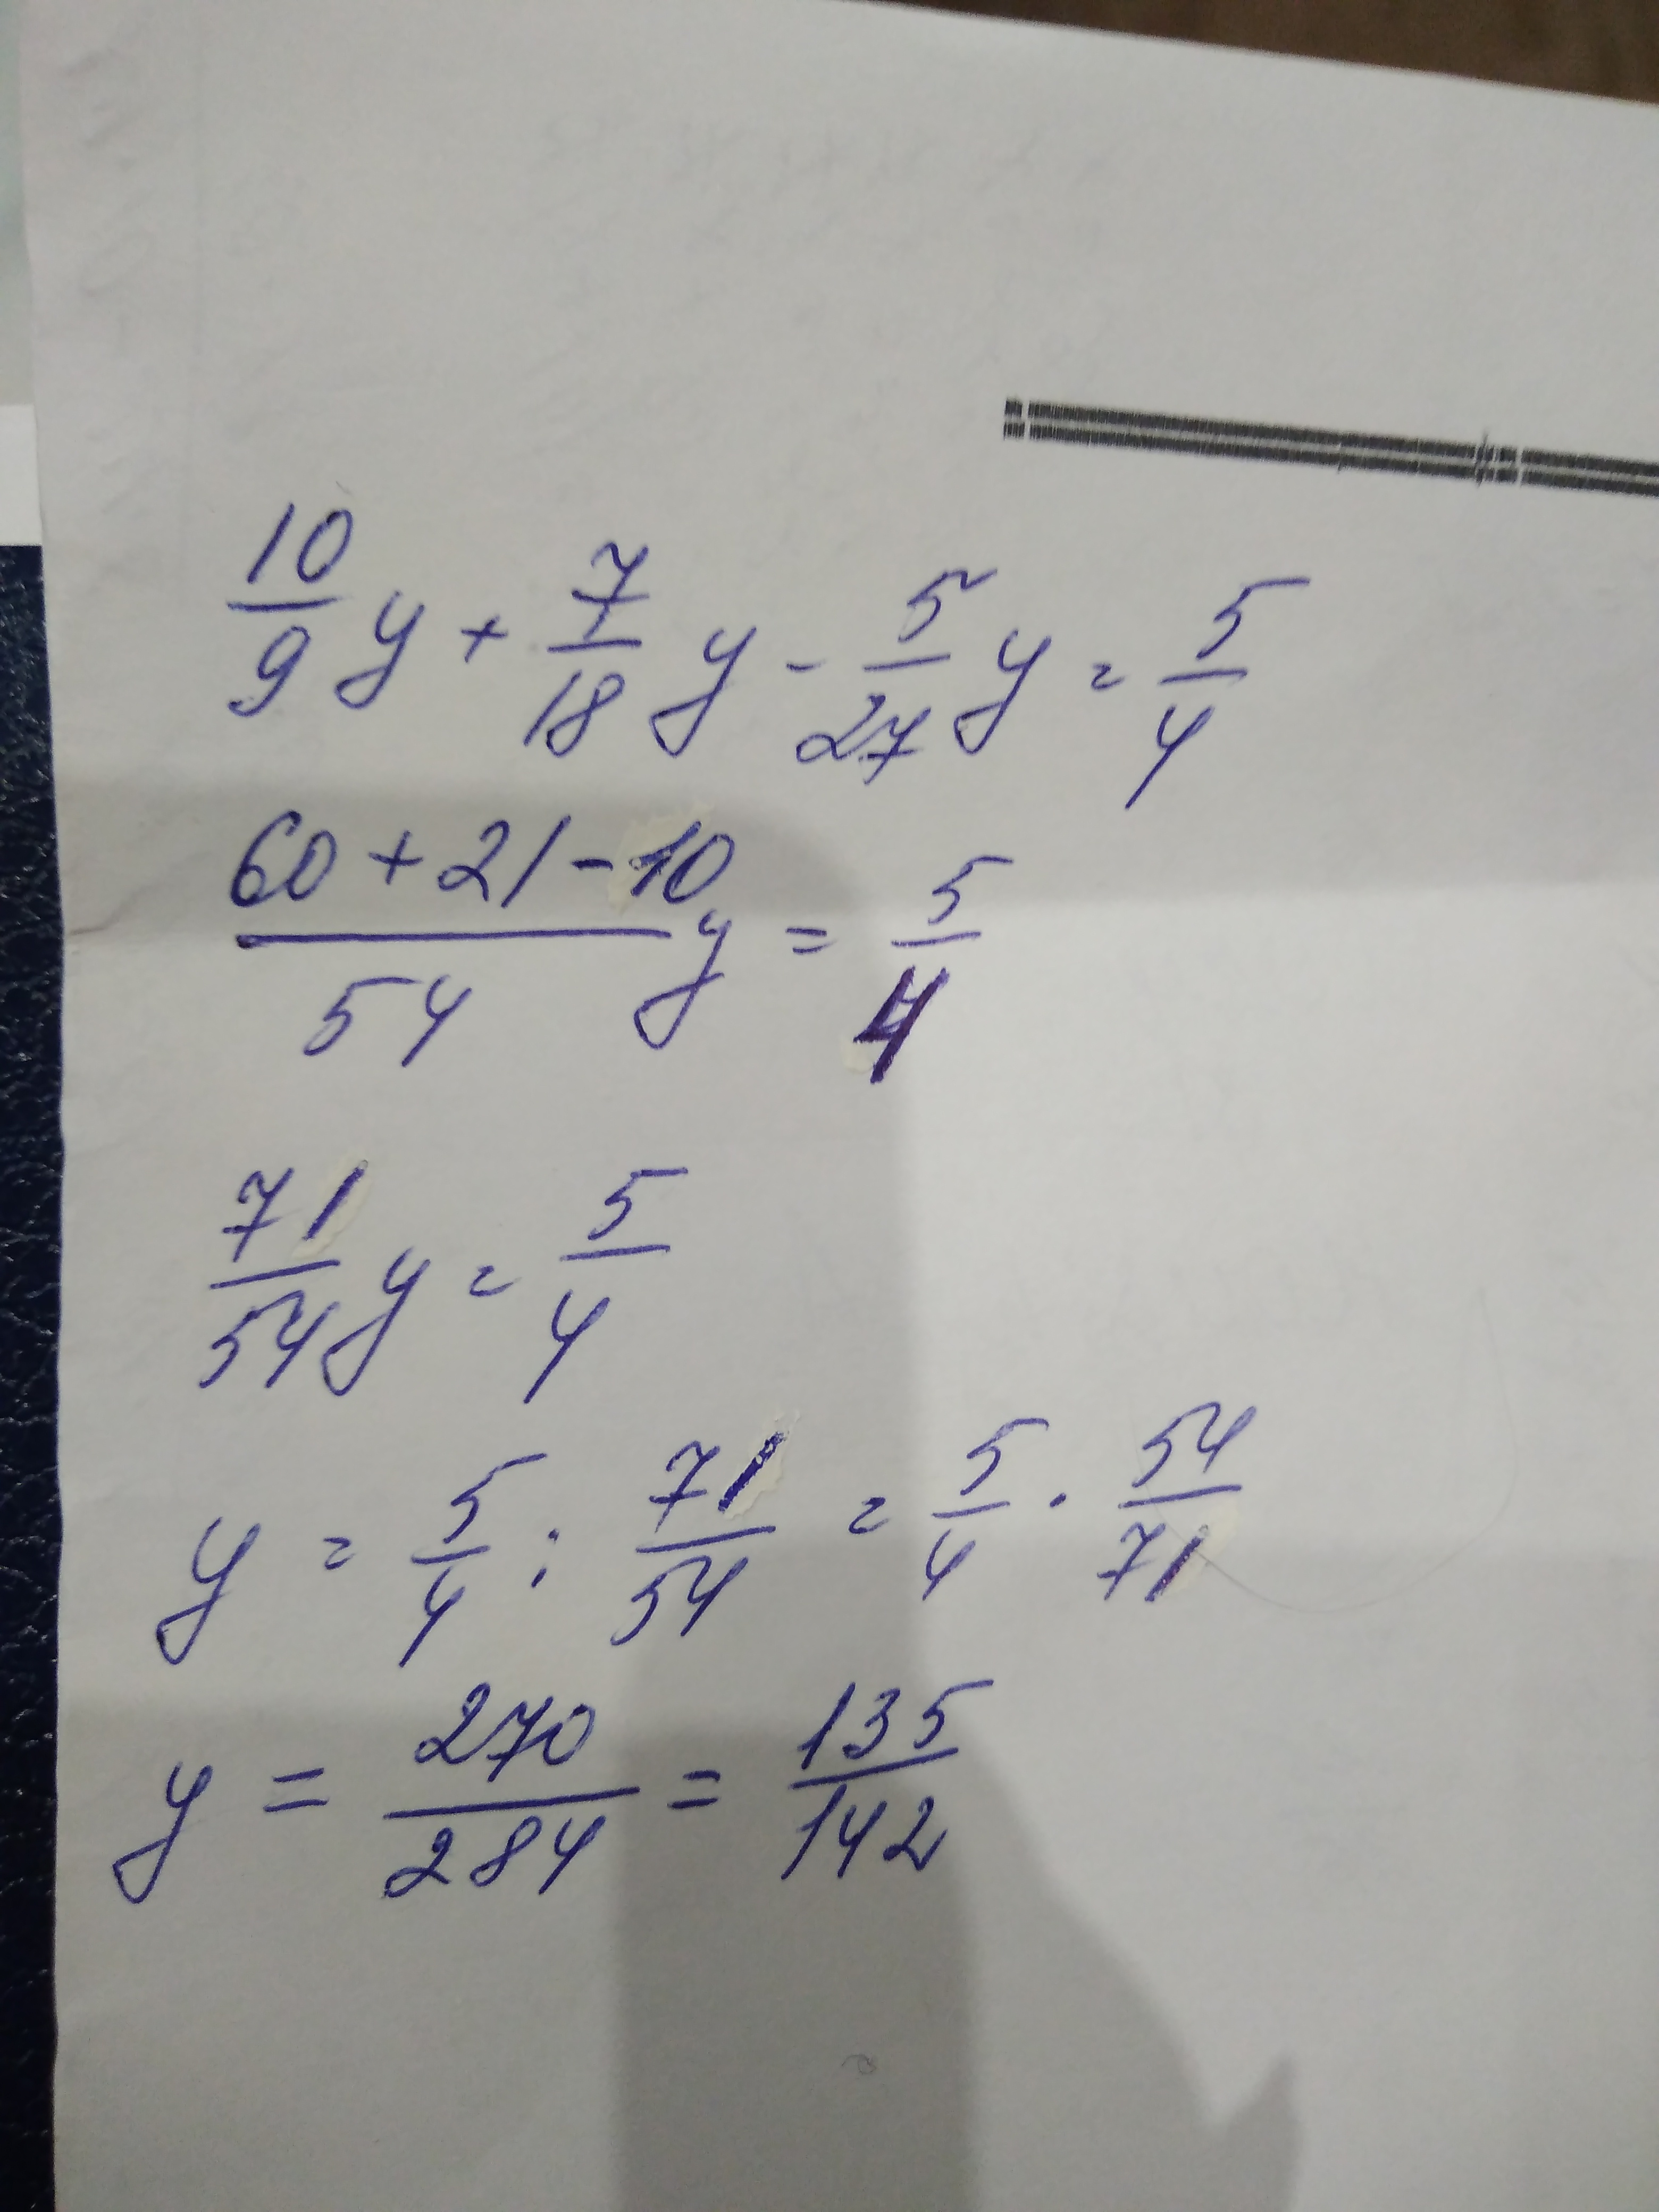 10/9 y + 7/18 y - 5/27 y = 5/4
60 + 21 - 10/54 y = 5/4
71/54 y = 5/4
y = 5/4 : 71/54 = 5/4 · 54/71
y = 270/284 = 135/142